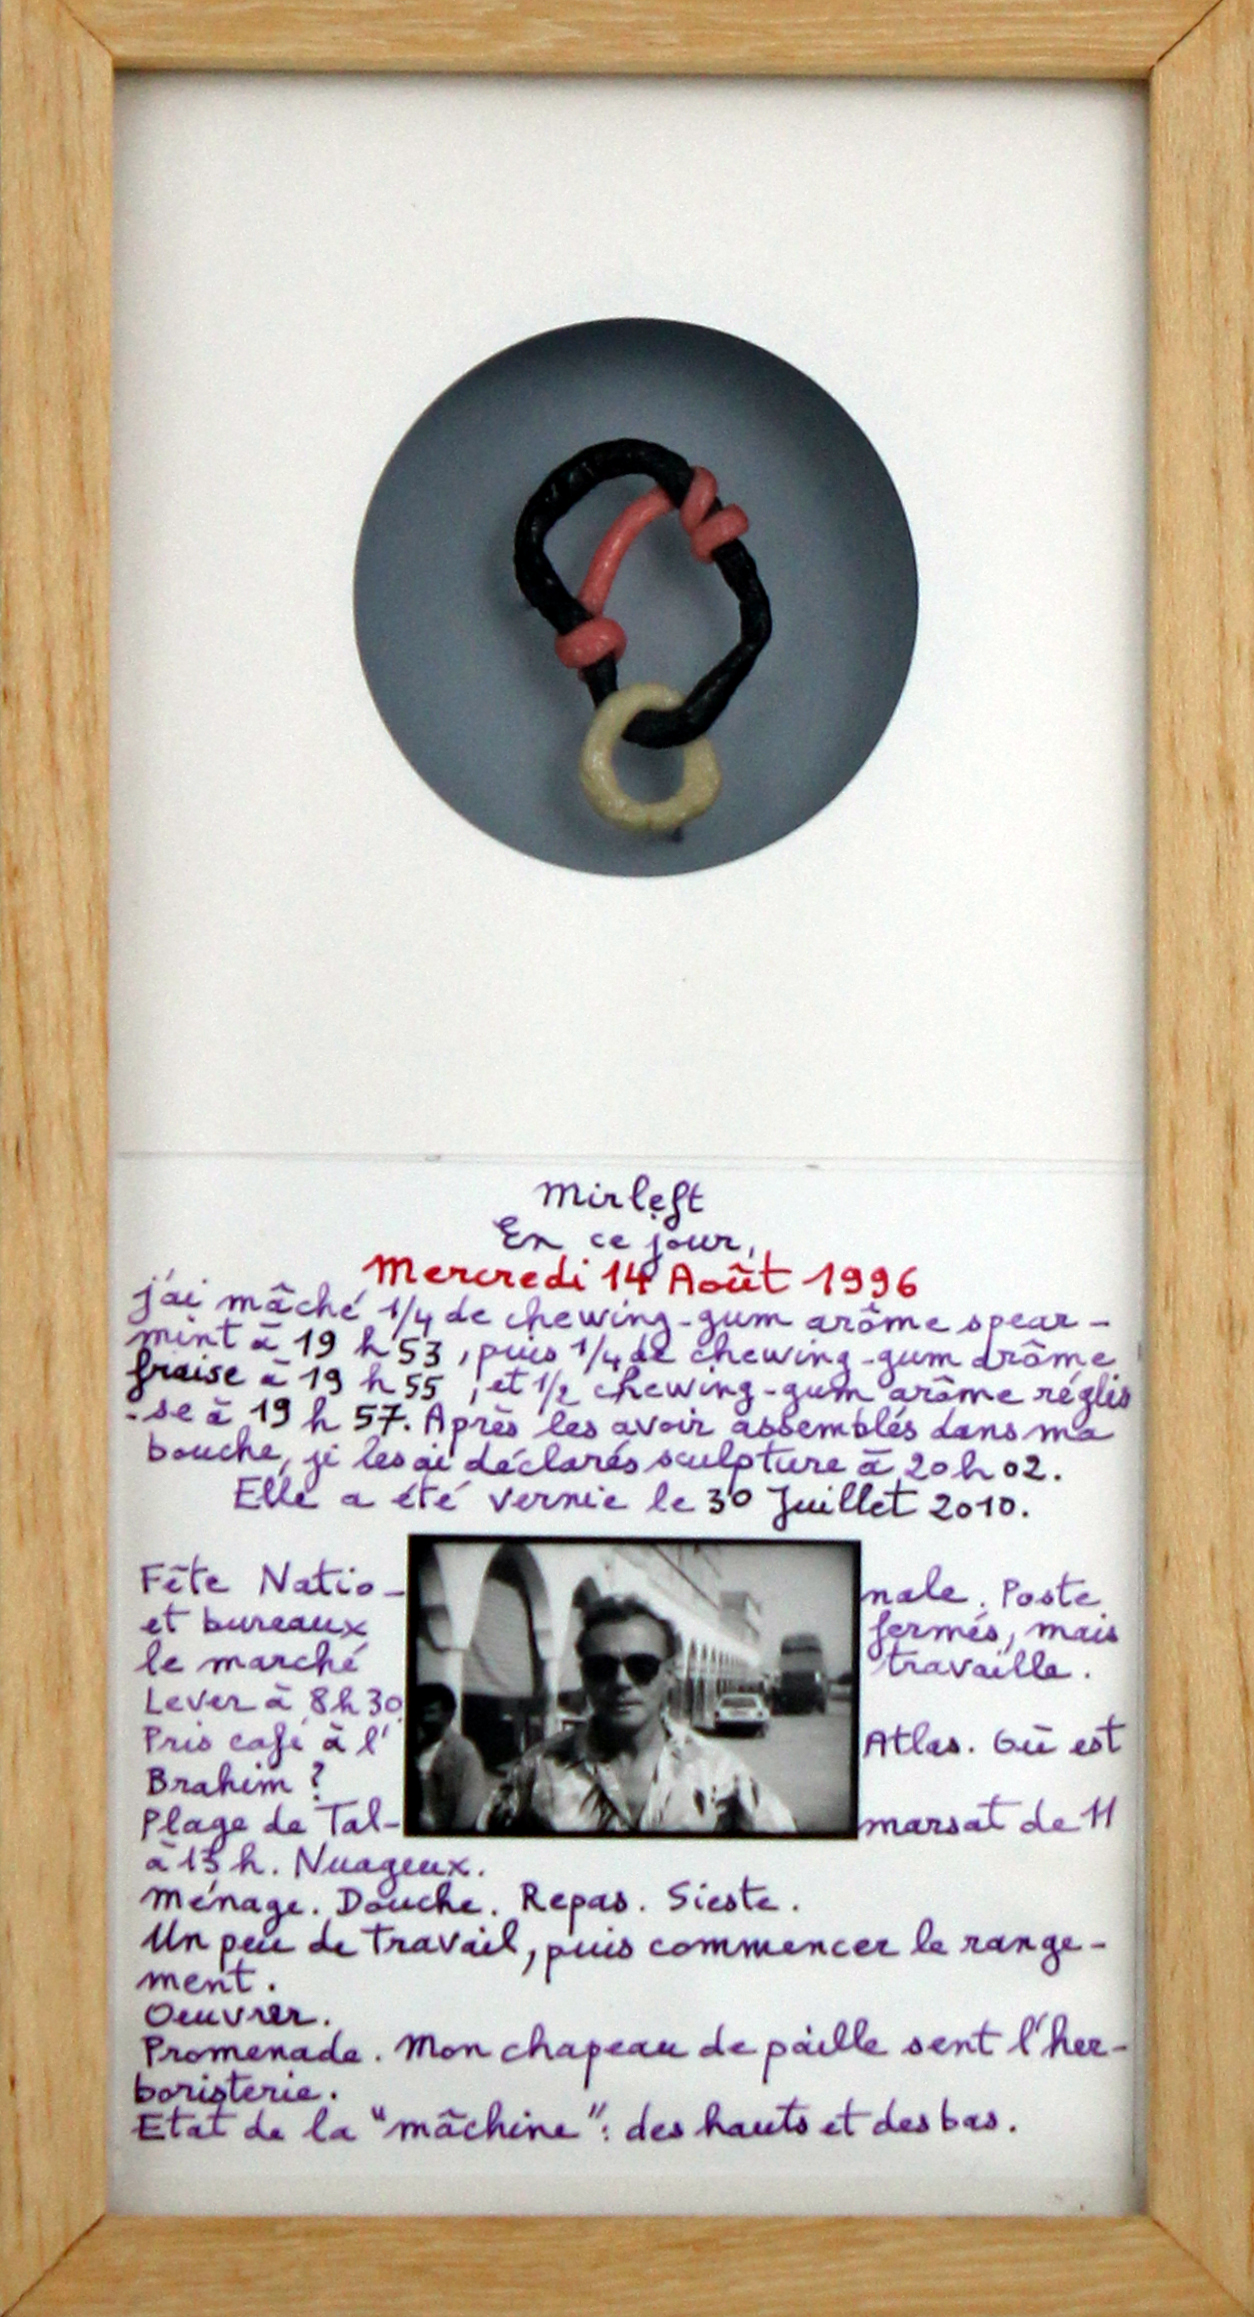 Mirleft
En ce jour,
Mercredi 14 Août 1996
j'ai mâché 1/4 de chewing-gum arôme spear-
mint à 19 h 53, puis 1/4 de chewing-gum arôme
fraise à 19 h 55, et 1/2 chewing-gum arôme réglis
-se à 19 h 57. Après les avoir assemblés dans ma
bouche, je les ai déclarés sculpture à 20 h 02.
Elle a été vernie le 30 Juillet 2010.
Fête Natio- nale. Poste
et bureaux fermés, mais
le marché travaille.
Lever à 8 h 30
Pris café à l' Atlas. Où est
Brahim ?
Plage de Tal- marsat de 11
à 13 h. Nuageux.
Ménage. Douche. Repas. Sieste.
Un peu de travail, puis commencer le range-
ment.
Oeuvrer.
Promenade. Mon chapeau de paille sent l'her-
boristerie.
Etat de la "mâchine": des hauts et des bas.